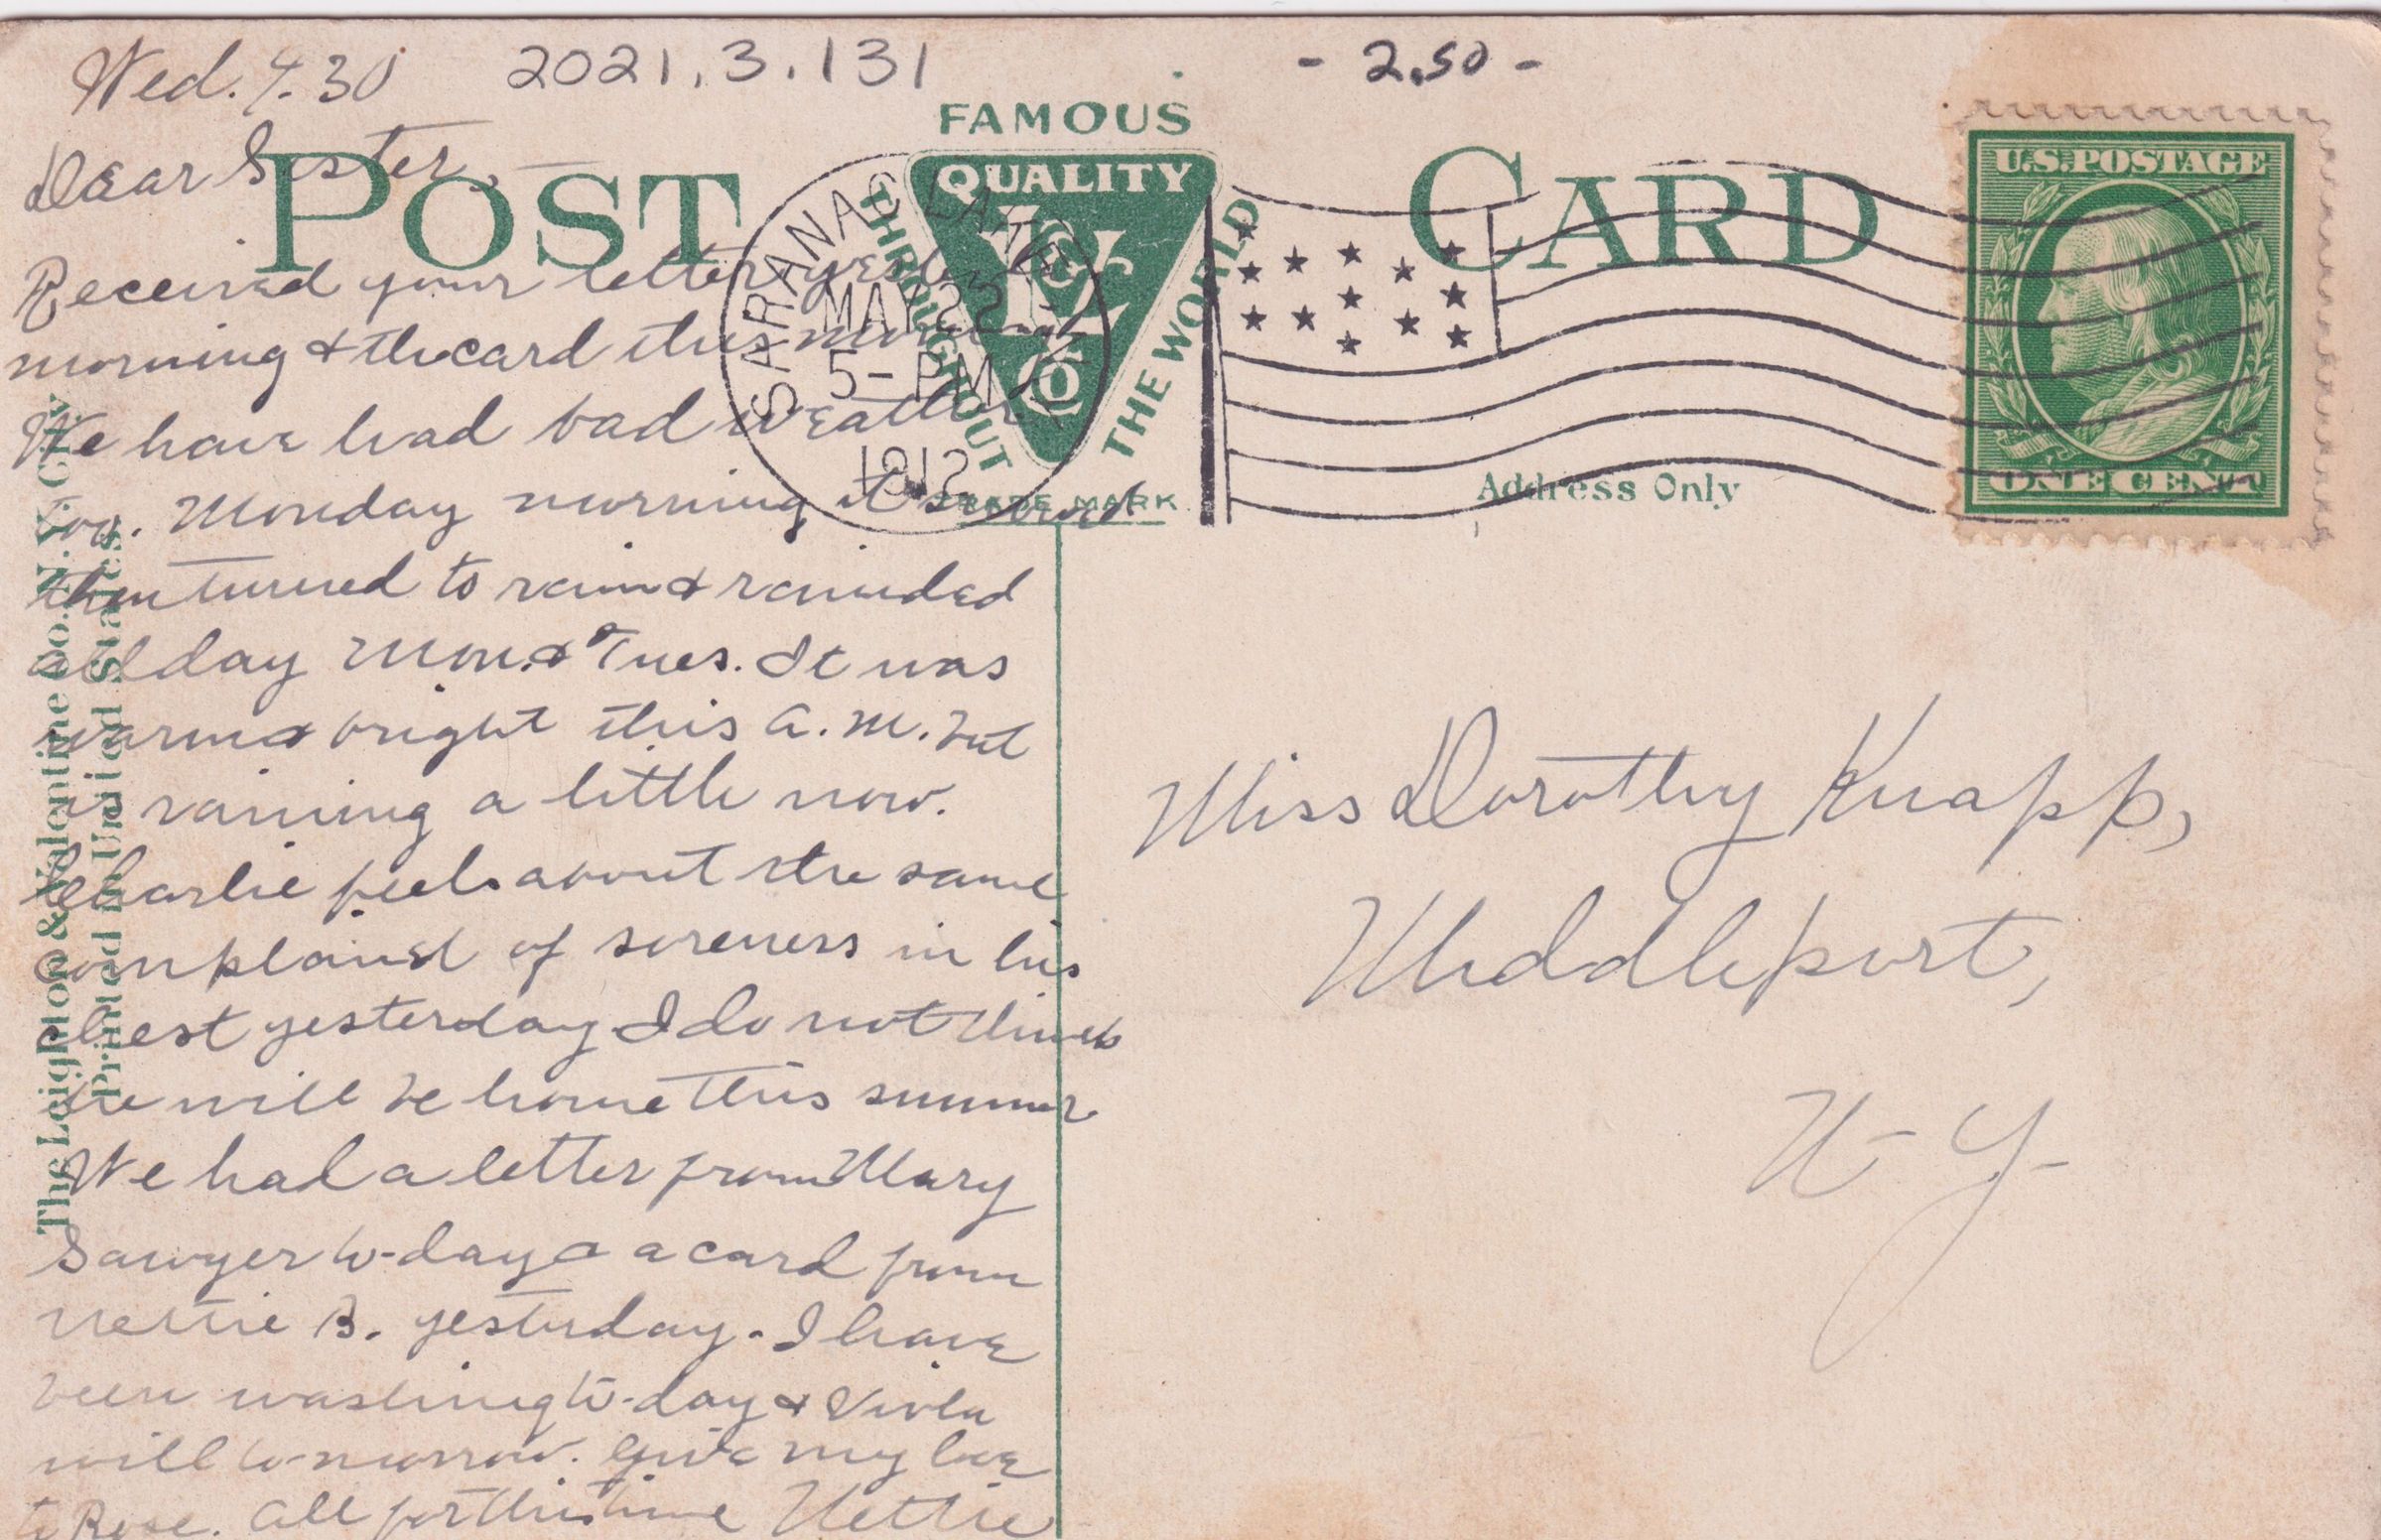 Wed. 4.30
2021.3.131
- 2.50 -
FAMOUS
QUALITY
THROUGHOUT
THE WORLD
L&V
Co
TRADE MARK
POST CARD
Address Only
SARANAC LAKE
MAY 22
5-PM
1912
N.Y.
U.S. POSTAGE
ONE CENT
Dear Sister,
Received your letter yesterday
morning & the card this morning
We have had bad weather
too. Monday morning it snowed
then turned to rain & rainded
all day Mon. & Tues. It was
warm & bright this A.M. but
is raining a little now.
Charlie feels about the same
complained of soreness in his
chest yesterday I do not think
he will be home this summer
We had a letter from Mary
Sawyer to-day & a card from
Nettie B. yesterday. I have
been washing to-day & Viola
will to-morrow. Give my love
to Rose. All for this time Nettie
Miss Dorothy Knapp,
Middleport,
N-Y-
The Leighton & Valentine Co., N.Y. City
Printed in United States